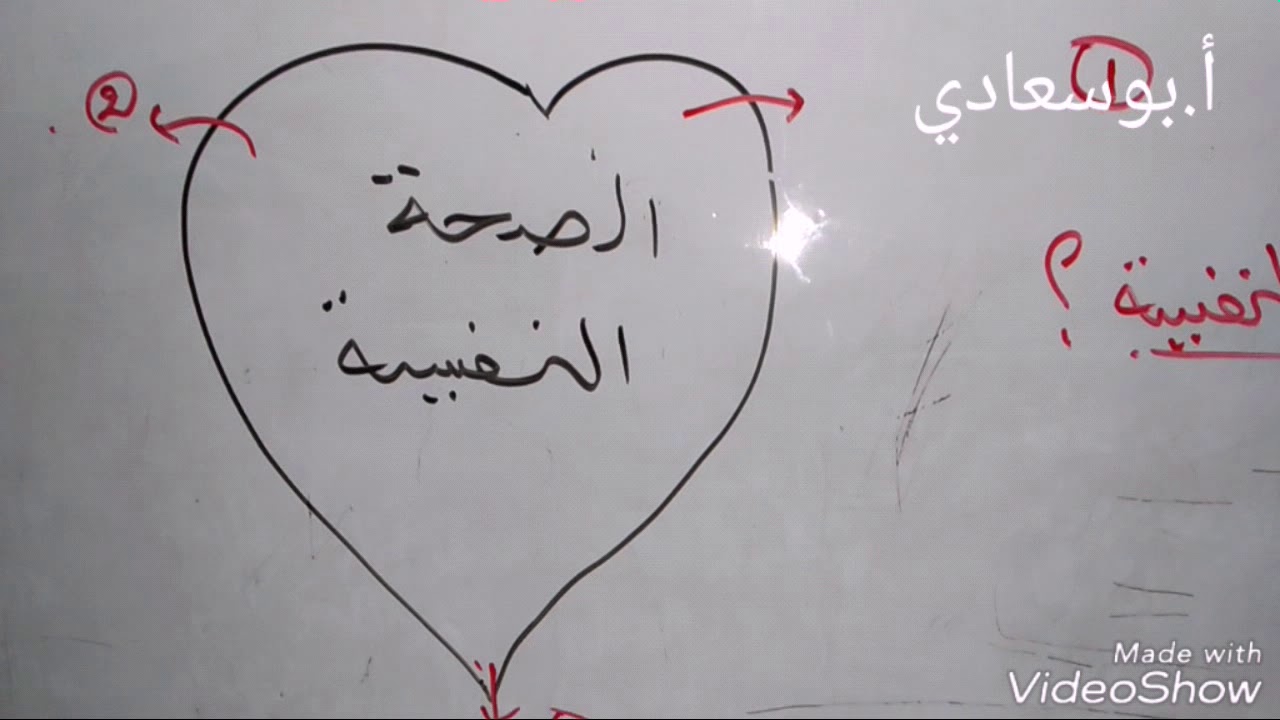 أ.بوسعادي
1
2
الصحة
النفسية
النفسية ؟
Made with
VideoShow